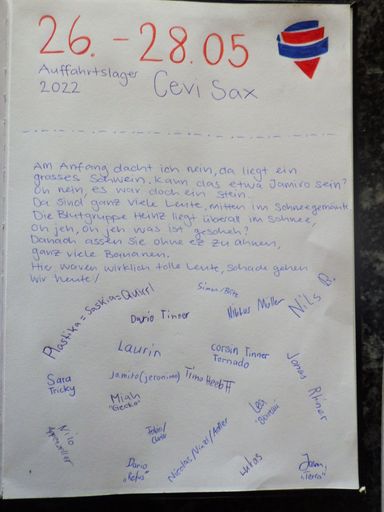 26. - 28.05
Auffahrtslager
2022
Cevi Sax
Am Anfang dacht ich nein, da liegt ein
grosses Schwein. Kann das etwa Jamiro sein?
Oh nein, es war doch ein Stein.
Da sind ganz viele Leute, mitten im Schneegemänte
Die Blutgruppe Heinz liegt überall im Schnee,
Oh jeh, oh jeh was ist gescheh?
Danach assen Sie ohne ez zu ahnen,
ganz viele Bananen.
Hier waren wirklich tolle Leute, schade gehen
wir heute!
Plashka = Saskia = Quirl
Simon/Britz
Dario Tinner
Müller
Nils B.
Laurin
Corsin Tinner
Tornado
Jonas Rhiner
Sara
Tricky
Jamiro (jeronimo)
Timo Heeb
Miah
"Gecko"
Lea
Nilo
Tobin/
Dario
"Rufus"
Nicolas/Nico/Adler
Lukas
"Terra"